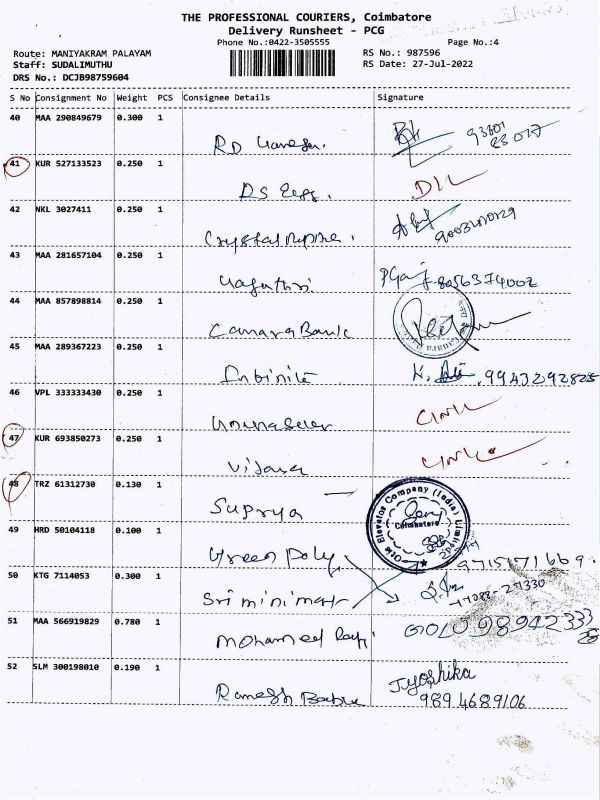 THE PROFESSIONAL COURIERS, Coimbatore
Delivery Runsheet - PCG
Phone No.:0422-3505555
Page No.:4
Route: MANIYAKRAM PALAYAM
RS No.: 987596
Staff: SUDALIMUTHU
RS Date: 27-Jul-2022
DRS No.: DCJB98759604
S No Consignment No Weight PCS Consignee Details Signature
40 MAA 290849679 0.300 1
41 KUR 527133523 0.250 1
42 NKL 3027411 0.250 1
43 MAA 281657104 0.250 1
8056374002
44 MAA 857898814 0.250 1
Canara Bank
45 MAA 289367223 0.250 1
Infinite 9943292825
46 VPL 333333430 0.250 1
47 KUR 693850273 0.250 1
Vijaya
48 TRZ 61312730 0.130 1
Suprya
Otis Elevator Company (India) Limited
Coimbatore
49 HRD 50104118 0.100 1
Green Poly 9715171669
50 KTG 7114053 0.300 1
Sri mini mart
51 MAA 566919829 0.780 1
Mohamed Rafi
52 SLM 300198010 0.190 1
Ramesh Babu Jyoshika
9894689106